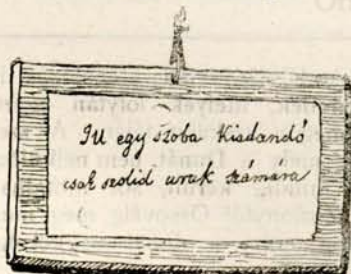 Itt egy szoba Kiadandó
csak szolid urak számára